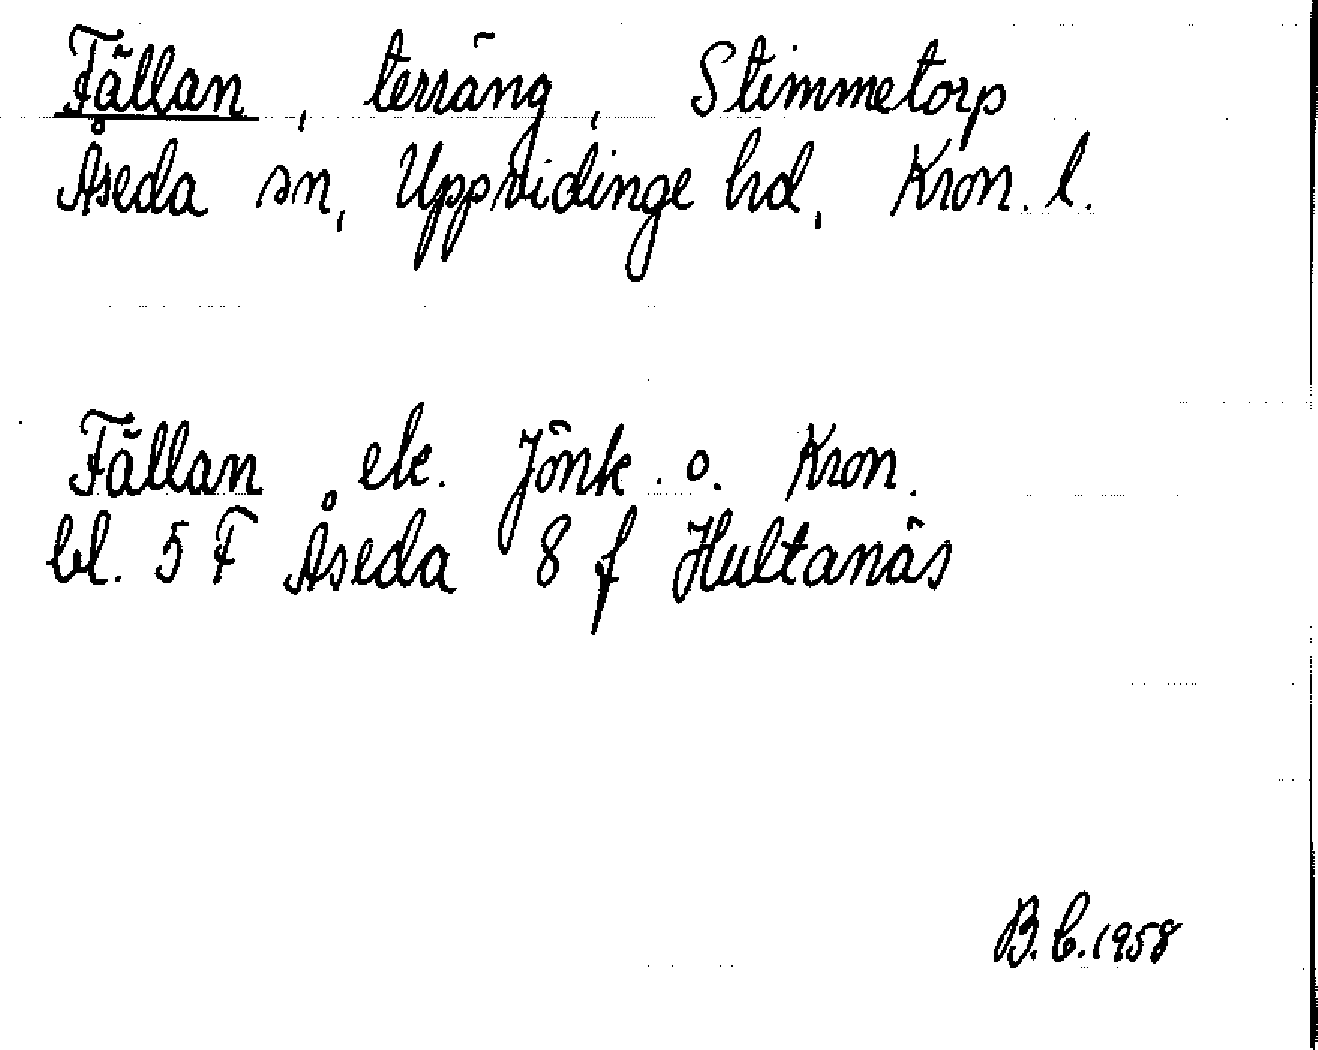 Fällan, terräng, Stimmetorp
Åseda sn, Uppvidinge hd, Kron. l.
Fällan ek. Jönk. o. Kron.
bl. 5 F Åseda 8 f Hultanäs
B.C.1958